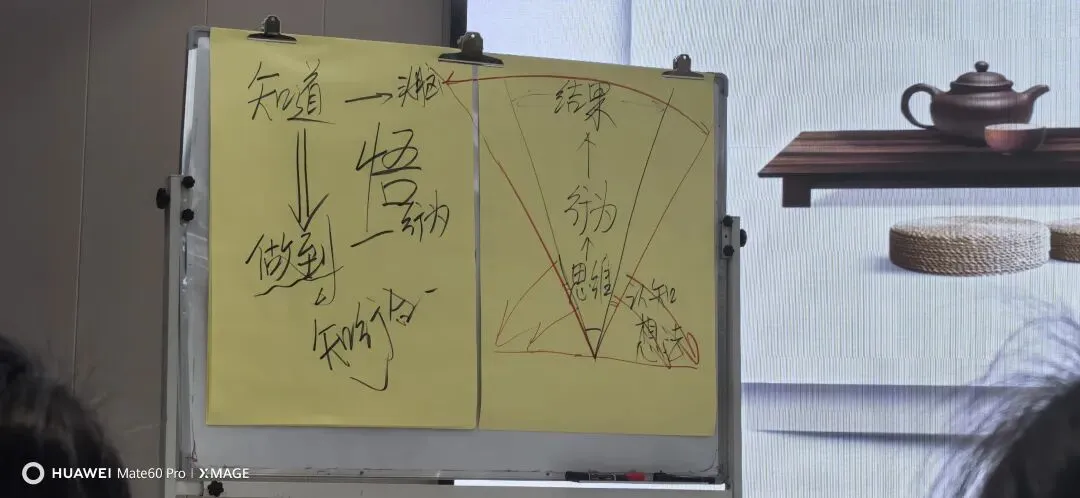 知道 → 头脑
悟
做到 — 行为
知行合一
结果
↑
行为
↑
思维
认知
想法
HUAWEI Mate60 Pro | XMAGE